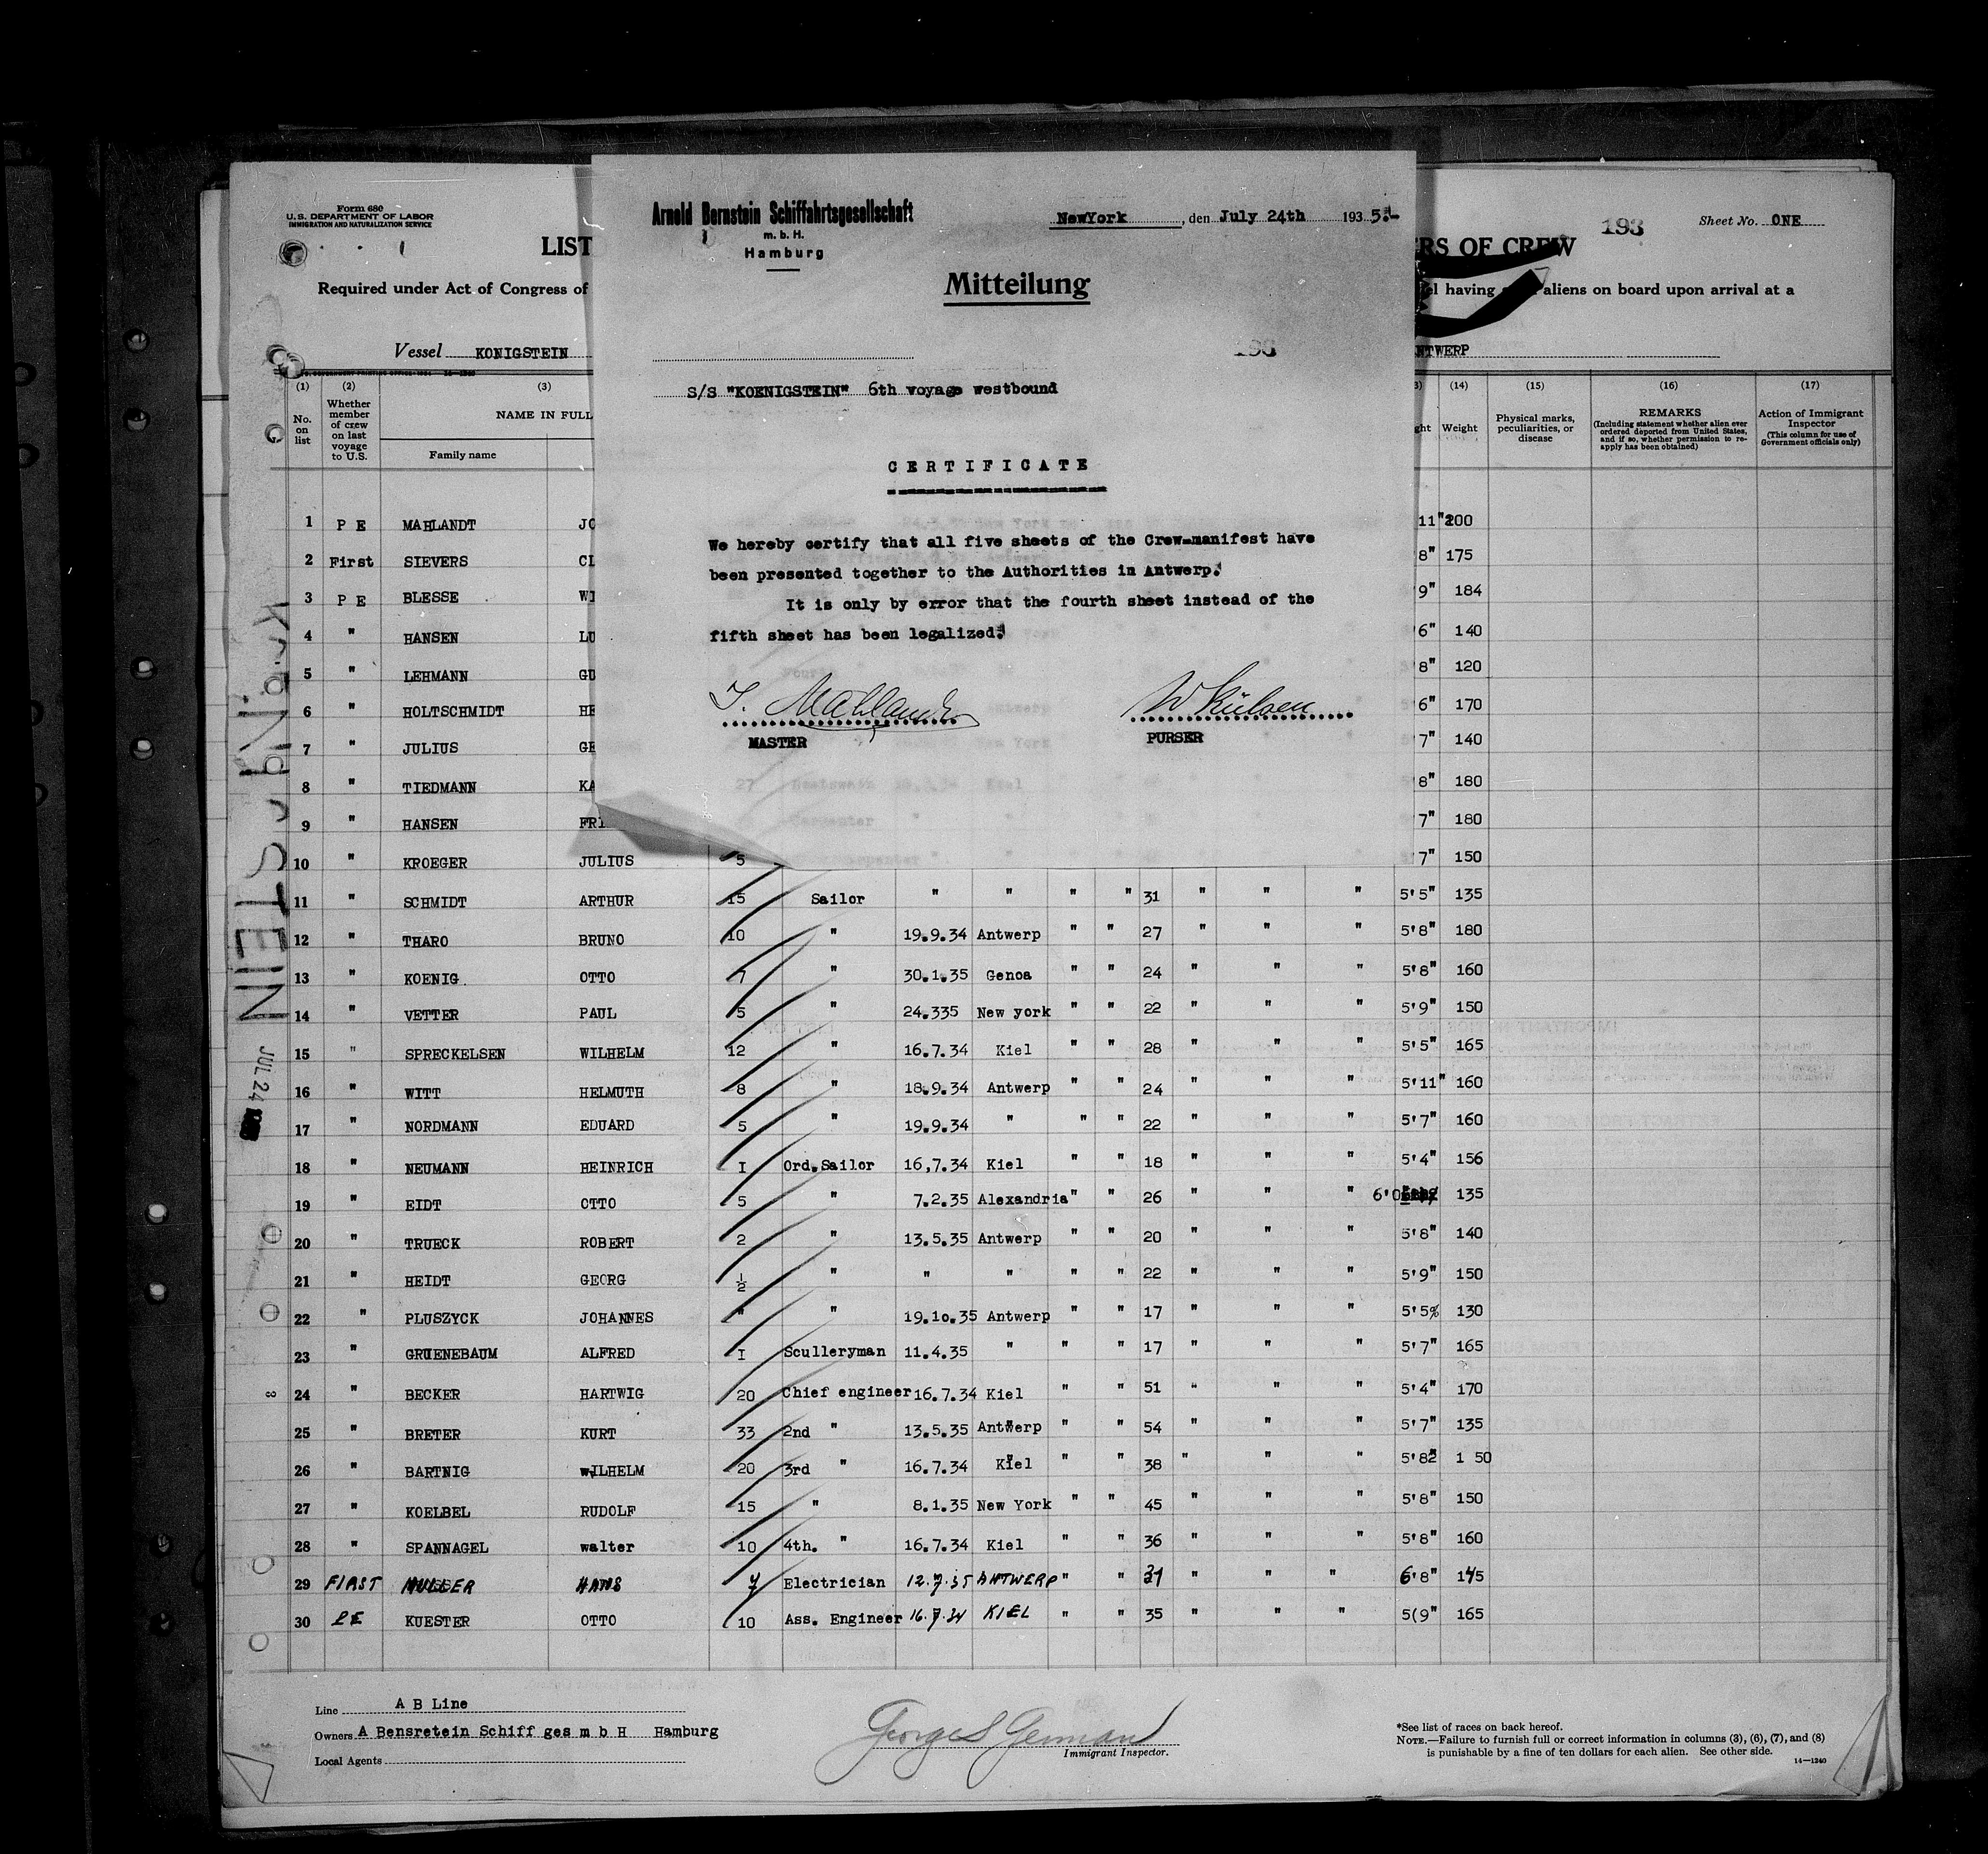 Form 680
U.S. DEPARTMENT OF LABOR
IMMIGRATION AND NATURALIZATION SERVICE
LIST
RS OF CREW
193
Sheet No. ONE
Required under Act of Congress of
having aliens on board upon arrival at a
Vessel KONIGSTEIN
ANTWERP
Arnold Bernstein Schiffahrtsgesellschaft
m. b. H.
Hamburg
NewYork, den July 24th 1935.-
Mitteilung
193
S/S "KOENIGSTEIN" 6th voyage westbound
CERTIFICATE
We hereby certify that all five sheets of the Crew-manifest have
been presented together to the Authorities in Antwerp.
It is only by error that the fourth sheet instead of the
fifth sheet has been legalized.
J. Mahlandt
MASTER
PURSER
(1) (2) (3) (14) (15) (16) (17)
No. on list
Whether member of crew on last voyage to U.S.
NAME IN FULL
Family name
Weight
Physical marks, peculiarities, or disease
REMARKS
(Including statement whether alien ever ordered deported from United States, and if so, whether permission to re-apply has been obtained)
Action of Immigrant Inspector
(This column for use of Government officials only)
1 P E MAHLANDT JO 11" 200
2 First SIEVERS CL 8" 175
3 P E BLESSE WI 9" 184
4 " HANSEN LU 6" 140
5 " LEHMANN GU 8" 120
6 " HOLTSCHMIDT HE 6" 170
7 " JULIUS GE 7" 140
8 " TIEDMANN KA 8" 180
9 " HANSEN FRI 7" 180
10 " KROEGER JULIUS 5 7" 150
11 " SCHMIDT ARTHUR 15 Sailor " " " " 31 " " " 5'5" 135
12 " THARO BRUNO 10 " 19.9.34 Antwerp " " 27 " " " 5'8" 180
13 " KOENIG OTTO 7 " 30.1.35 Genoa " " 24 " " " 5'8" 160
14 " VETTER PAUL 5 " 24.335 New york " " 22 " " " 5'9" 150
15 " SPRECKELSEN WILHELM 12 " 16.7.34 Kiel " " 28 " " " 5'5" 165
16 " WITT HELMUTH 8 " 18.9.34 Antwerp " " 24 " " " 5'11" 160
17 " NORDMANN EDUARD 5 " 19.9.34 " " " 22 " " " 5'7" 160
18 " NEUMANN HEINRICH I Ord.Sailor 16,7.34 Kiel " " 18 " " " 5'4" 156
19 " EIDT OTTO 5 " 7.2.35 Alexandria " " 26 " " " 6'0 135
20 " TRUECK ROBERT 2 " 13.5.35 Antwerp " " 20 " " " 5'8" 140
21 " HEIDT GEORG 1/2 " " " " " 22 " " " 5'9" 150
22 " PLUSZYCK JOHANNES " " 19.10.35 Antwerp " " 17 " " " 5'5% 130
23 " GRUENEBAUM ALFRED I Sculleryman 11.4.35 " " " 17 " " " 5'7" 165
24 " BECKER HARTWIG 20 Chief engineer 16.7.34 Kiel " " 51 " " " 5'4" 170
25 " BRETER KURT 33 2nd " 13.5.35 Antwerp " " 54 " " " 5'7" 135
26 " BARTNIG wILHELM 20 3rd " 16.7.34 Kiel " " 38 " " " 5'82 1 50
27 " KOELBEL RUDOLF 15 " 8.1.35 New York " " 45 " " " 5'8" 150
28 " SPANNAGEL walter 10 4th. " 16.7.34 Kiel " " 36 " " " 5'8" 160
29 FIRST MULLER HANS Electrician 12.7.35 ANTWERP " " " " " 6'8" 145
30 PE KUESTER OTTO 10 Ass. Engineer 16.7.34 KIEL " " 35 " " " 5(9" 165
KONIGSTEIN
JUL 24
Line A B Line
Owners A Bensretein Schiff ges m b H Hamburg
Local Agents
George S German
Immigrant Inspector.
*See list of races on back hereof.
NOTE.—Failure to furnish full or correct information in columns (3), (6), (7), and (8)
is punishable by a fine of ten dollars for each alien. See other side.
14—1240